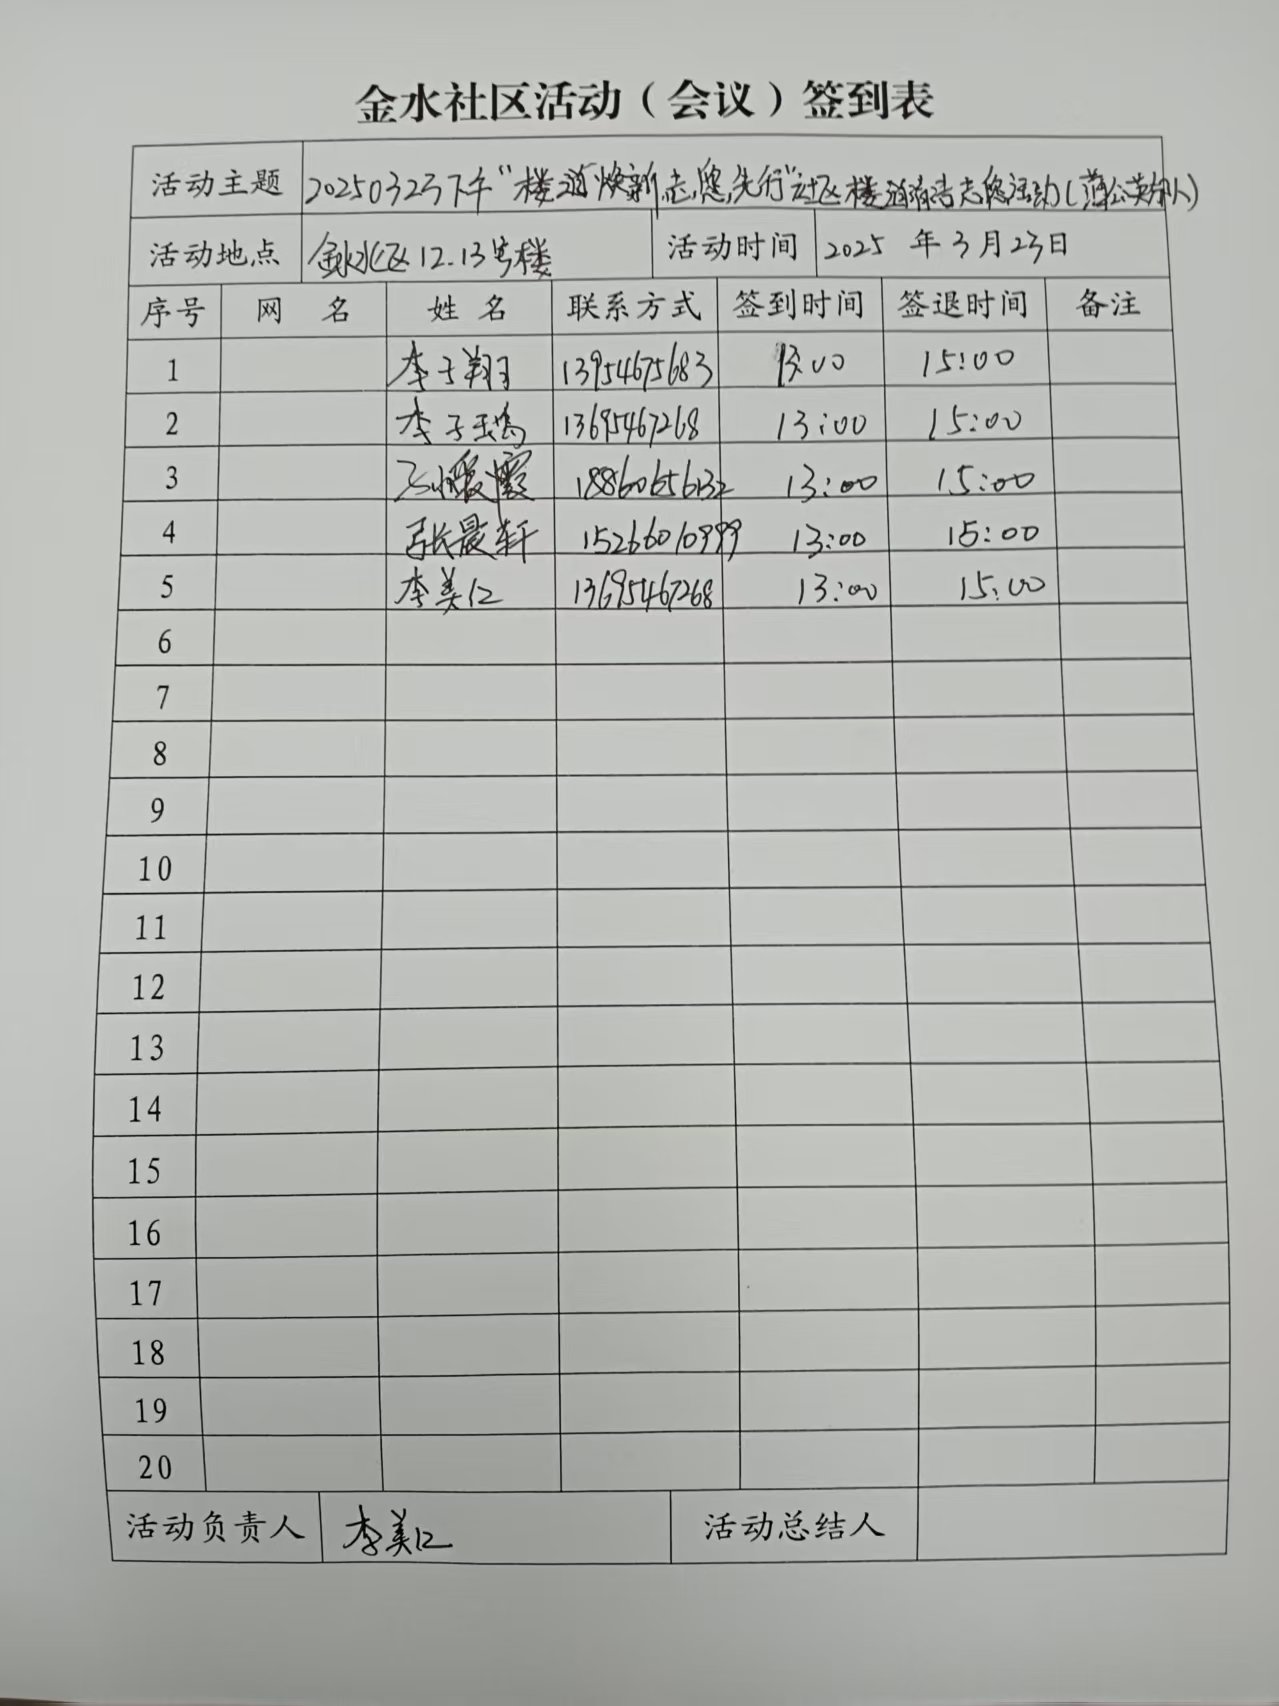 金水社区活动（会议）签到表
活动主题 20250323下午“楼道焕新,志愿先行”社区楼道清洁志愿活动(蒲公英
活动地点 金水区12.13号楼 活动时间 2025 年3月23日
序号 网 名 姓 名 联系方式 签到时间 签退时间 备注
1 李子翔 13954675683 13:00 15:00
2 李子 13695467268 13:00 15:00
3 13:00 15:00
4 张晨轩 15266010999 13:00 15:00
5 李美仁 13695467268 13:00 15:00
6
7
8
9
10
11
12
13
14
15
16
17
18
19
20
活动负责人 李美仁 活动总结人